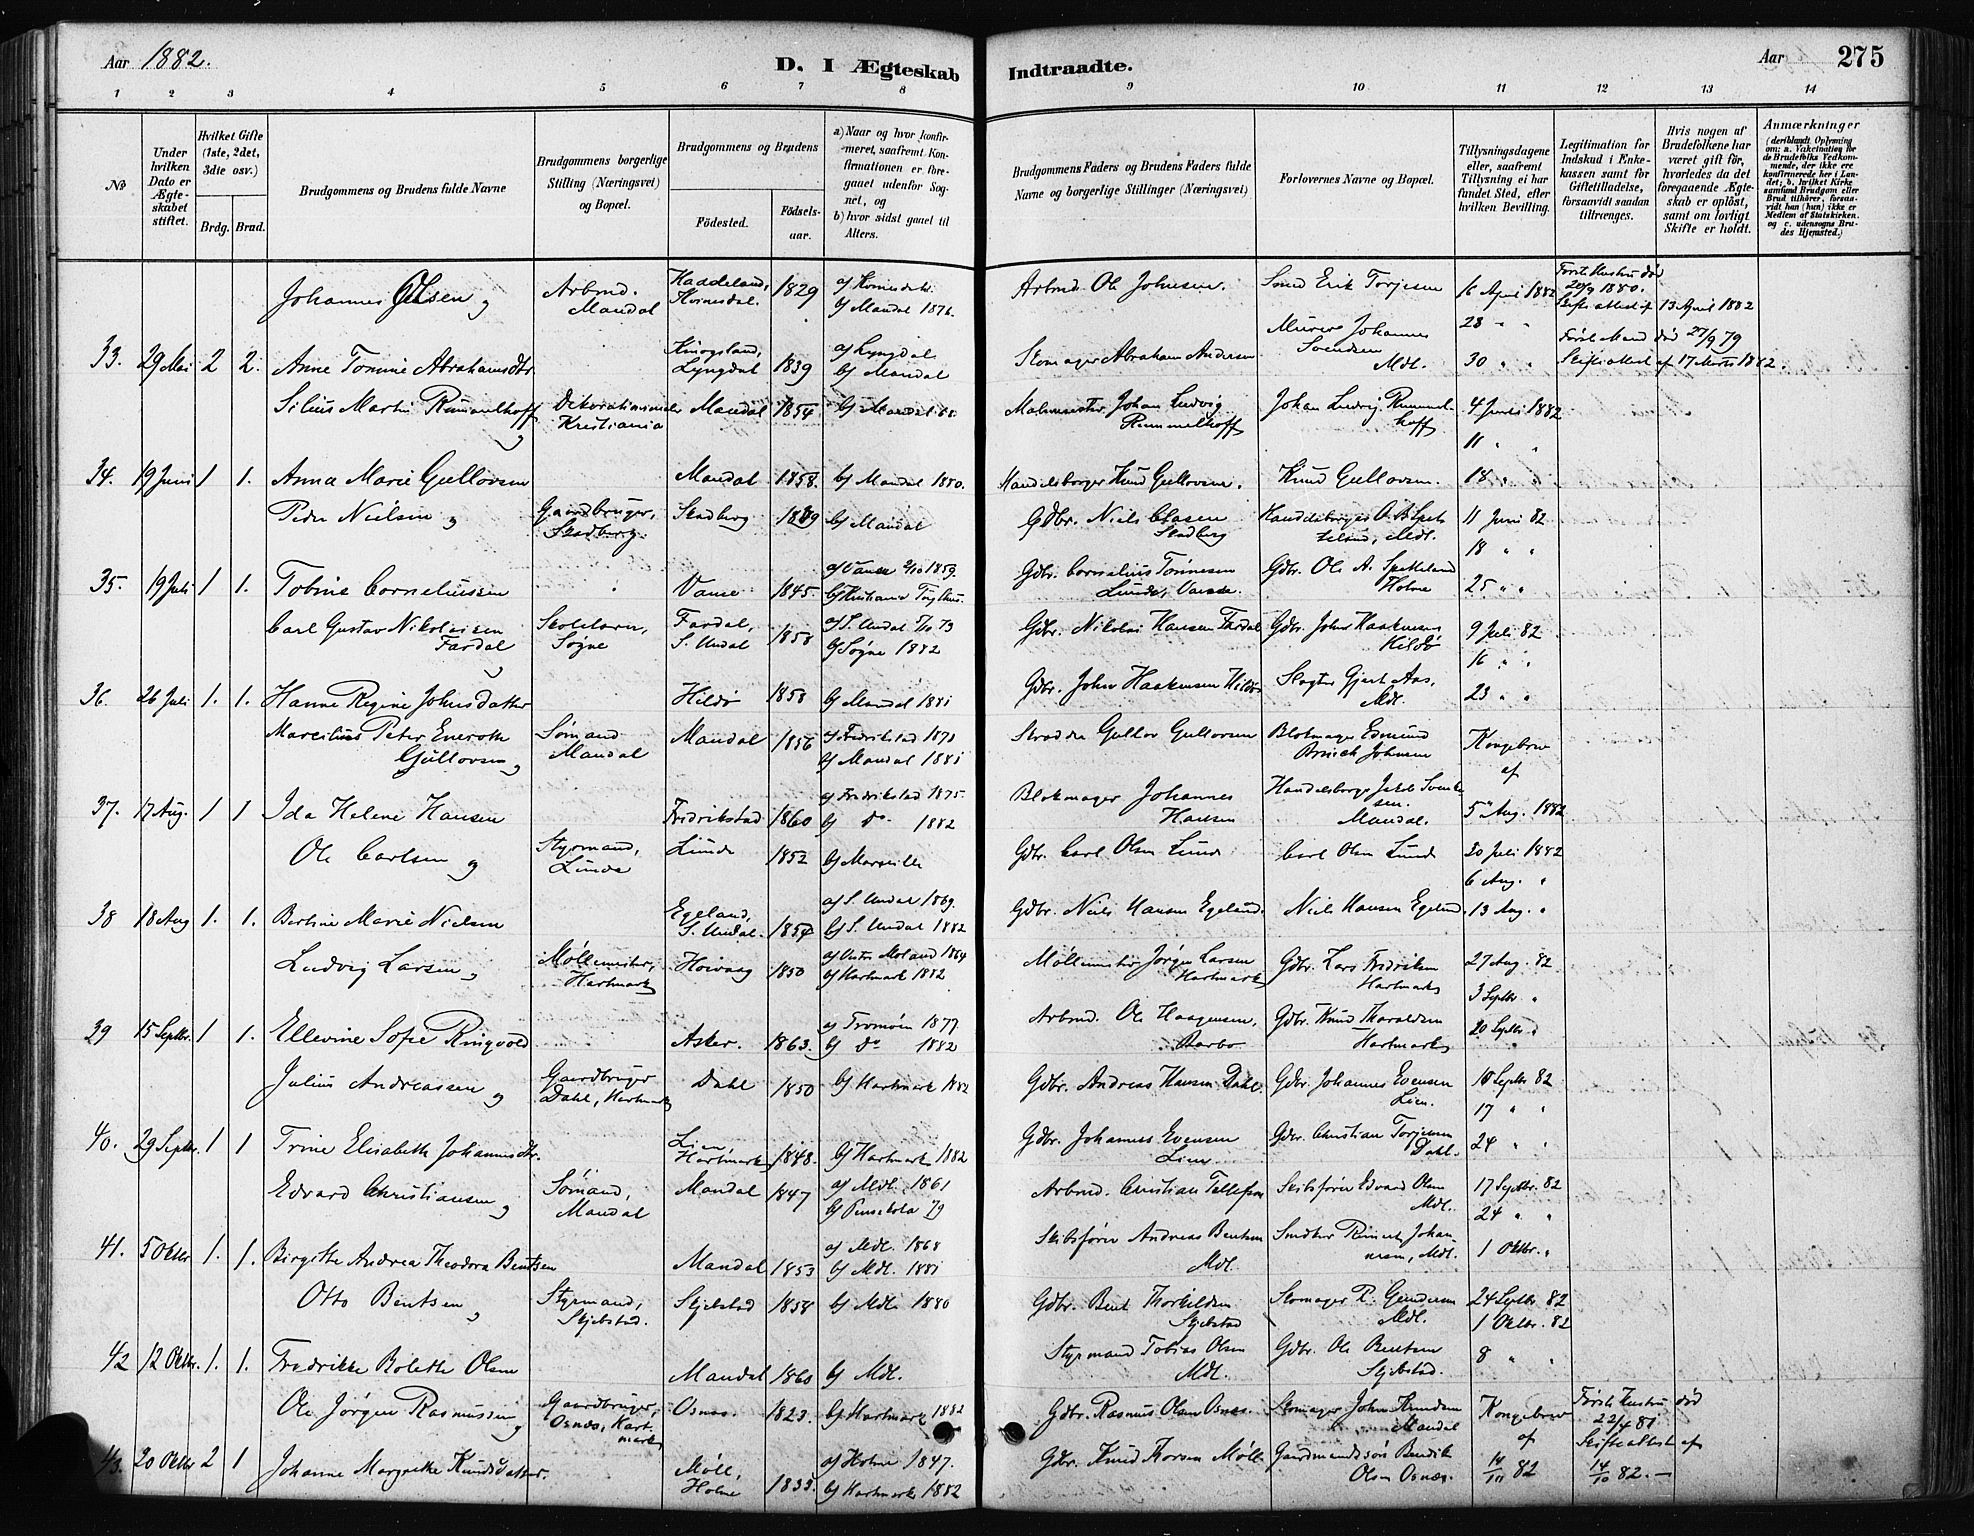 Aar 1882.
D. I Ægteskab
Indtraadte.
Aar
275
1 2 3 4 5 6 7 8 9 10 11 12 13 14
No
Under hvilken Dato er Ægteskabet stiftet.
Hvilket Gifte (1ste, 2det, 3die osv.)
Brdg. Brud.
Brudgommens og Brudens fulde Navne
Brudgommens borgerlige Stilling (Næringsvei) og Bopæl.
Brudgommens og Brudens
Fødested.
Fødsels-aar.
a) Naar og hvor konfirmeret, saafremt Konfirmationen er foregaaet udenfor Sognet, og
b) hvor sidst gaaet til Alters.
Brudgommens Faders og Brudens Faders fulde Navne og borgerlige Stillinger (Næringsvei)
Forlovernes Navne og Bopæl.
Tillysningsdagene eller, saafremt Tillysning ei har fundet Sted, efter hvilken Bevilling.
Legitimation for Indskud i Enkekassen samt for Giftetilladelse, forsaavidt saadan tiltrænges.
Hvis nogen af Brudefolkene har været gift før, hvorledes da det foregaaende Ægteskab er opløst, samt om lovligt Skifte er holdt.
Anmærkninger
(deriblandt Oplysning om: a. Vakcination for de Brudefolks Vedkommende, der ikke ere konfirmerede her i Landet; b. hvilket Kirkesamfund Brudgom eller Brud tilhører, forsaavidt han (hun) ikke er Medlem af Statskirken, og c. udensogns Brudes Hjemsted.)
Johannes Olsen og Arbmd. Mandal Haddeland, Kvinesdal. 1829 a) Kvinesdal b) Mandal 1876. Arbmd. Ole Johnsen. Smed Erik Torjesen 16 April 1882 Første Hustru død 20/9 1880. Skifteattest af 13 April 1882
33. 29 Mai 2 2. Anne Tomine Abrahamsdtr. Lyngdal 1839 a) Lyngdal b) Mandal Skomager Abraham Andersen Murer Johannes Svendsen Mdl. 23 " " 30 " " Første Mand død 27/9 79 Skifteattest af 17 Marts 1882.
Silius Martin Rummelhoff og Kristiania Mandal 1854 b) Mandal Malermester Johan Ludvig Rummelhoff Johan Ludvig Rummelhoff 4 Juni 1882 11 " "
34. 19 Juni 1 1. Anna Marie Gullovsen Mandal 1858. b) Mandal 1880. Handelsborger Knud Gullovsen. Knud Gullovsen. 18 " "
Peder Nielsen og Gaardbruger, Skadberg. Skadberg b) Mandal Gdbr. Niels Clasen Skadberg Handelsborger O. Mdl. 11 Juni 82 18 " "
35. 19 Juli 1 1. Tobine Corneliussen Vanse 1845. a) Vanse 1859. b) Kristiania Gdbr. Cornelius Tønnesen Lunde, Vanse. Gdbr. Ole A. Spetteland Holme 25 " "
Carl Gustav Nikolaisen Fardal og Skolelærer, Søgne Fardal, S. Undal 1858 a) S. Undal b) Søgne 1882 Gdbr. Nikolai Hansen Fardal Gdbr. John Haakensen Hildø 9 Juli 82 16 " "
36. 26 Juli 1. 1. Hanne Regine Johnsdatter Hildø 1853 b) Mandal 1881 Gdbr. John Haakensen Hildø Slagter Gjert Aas, Mdl. 23 " "
Marcilius Peter Eneroth Gullovsen og Sømand Mandal Mandal 1856 a) Fredrikstad b) Mandal 1881 Skrædder Gullov Gullovsen Blokmager Edmund Johnsen Kongebrev af
37. 17 Aug. 1 1 Ida Helene Hansen Fredrikstad 1860 a) Fredrikstad 1875. b) do 1882 Blokmager Johannes Hansen Handelsborger Mandal. 5 Aug. 1882
Ole Carlsen og Styrmand, Lunde Lunde 1852 b) Marseille Gdbr. Carl Olsen Lunde Carl Olsen Lunde 30 Juli 1882 6 Aug. "
38 18 Aug 1. 1. Bertine Marie Nielsen Egeland, S. Undal. 1854 a) S. Undal 1869. b) S. Undal 1882 Gdbr. Niels Hansen Egeland. Niels Hansen Egeland. 13 Aug. "
Ludvig Larsen og Møllemester, Hartmark Høivaag 1850 a) Vester Moland 1864 b) Hartmark 1882. Møllemester Jørgen Larsen Hartmark Gdbr. Lars Fredriksen Hartmark 27 Aug. 82 3 Septbr. "
39 15 Septbr. 1 1. Ellevine Sofie Ringvold Asker. 1863. a) Tromøen 1877 b) do 1882 Arbmd. Ole Haagensen, Barbo Gdbr. Knud Haraldsen Hartmark
Julius Andreassen og Gaardbruger Dahl, Hartmark Dahl 1850 b) Hartmark 1882 Gdbr. Andreas Hansen Dahl Gdbr. Johannes Evensen Lien. 10 Septbr 82 17 " "
40. 29 Septbr. 1 1 Trine Elisabeth Johannesdtr. Lien Hartmark 1848. b) Hartmark 1882 Gdbr. Johannes Evensen Lien Gdbr. Christian Torjesen Dahl. 24 " "
Edvard Christiansen og Sømand, Mandal Mandal 1847 a) Mdl. 1861 b) Pensekola 79 Arbmd. Christian Tellefsen Skibsfører Edvard Olsen Mdl. 17 Septbr. 82 24 " "
41. 5 Oktbr 1. 1. Birgitte Andrea Theodora Bentsen Mandal 1853 a) Mdl. 1868 b) Mdl. 1881 Skibsfører Andreas Bentsen Mdl. Snedker Reinert Johannesen, Mdl. 1 Oktbr. "
Otto Bentsen og Styrmand, Skjebstad. Skjebstad 1858 b) Mdl. 1880 Gdbr. Bent Thorkildsen Skjebstad Skomager R. Gundersen Mdl. 24 Septbr 82 1 Oktbr. 82
42 12 Oktbr. 1. 1. Fredrikke Bolette Olsen Mandal 1860 b) Mdl. Styrmand Tobias Olsen Mdl. Gdbr. Ole Bentsen Skjebstad. 8 " "
Ole Jørgen Rasmussen og Gaardbruger, Osnæs, Hartmark Osnæs. 1823. b) Hartmark 1882 Gdbr. Rasmus Olsen Osnæs. Skomager John Knudsen Mandal Kongebrev af Første Hustru død 22/4 81
43. 20 Oktbr 2 1 Johanne Margrethe Knudsdatter. Møll, Holme 1833. a) Holme 1847. b) Hartmark 1882 Gdbr. Knud Thorsen Møll Gaardmandssøn Bendik Olsen Osnæs. 14/10 82 Skifteattest af 14/10 82.